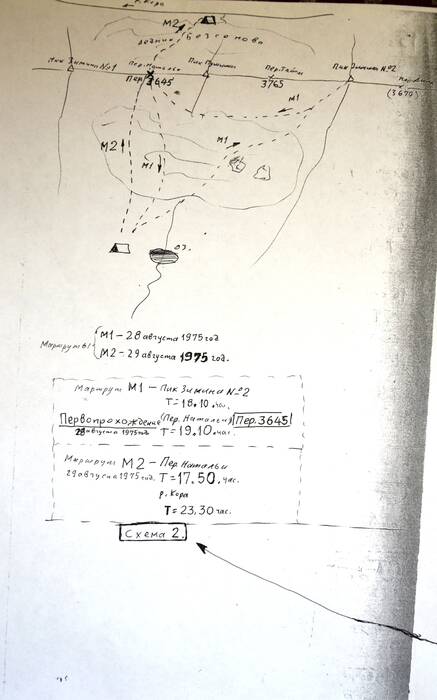 р. Кора
М2
Ледник Безсонова
Пик Зимина №1
Пер. Натальи
Пик Пушкина
Пер. Тайны
Пик Зимина №2
Пер. 3645
3765
(3670)
М1
М2
М1
М1
оз.
Маршруты
М1 - 28 августа 1975 год
М2 - 29 августа 1975 год.
Маршрут М1 - Пик Зимина №2
Т = 18.10. час.
Первопрохождение (Пер. Натальи) Пер. 3645
28 августа 1975 год. Т = 19.10. час.
Маршрут М2 - Пер. Натальи
29 августа 1975 год. Т = 17.50. час.
р. Кора
Т = 23.30 час.
Схема 2.